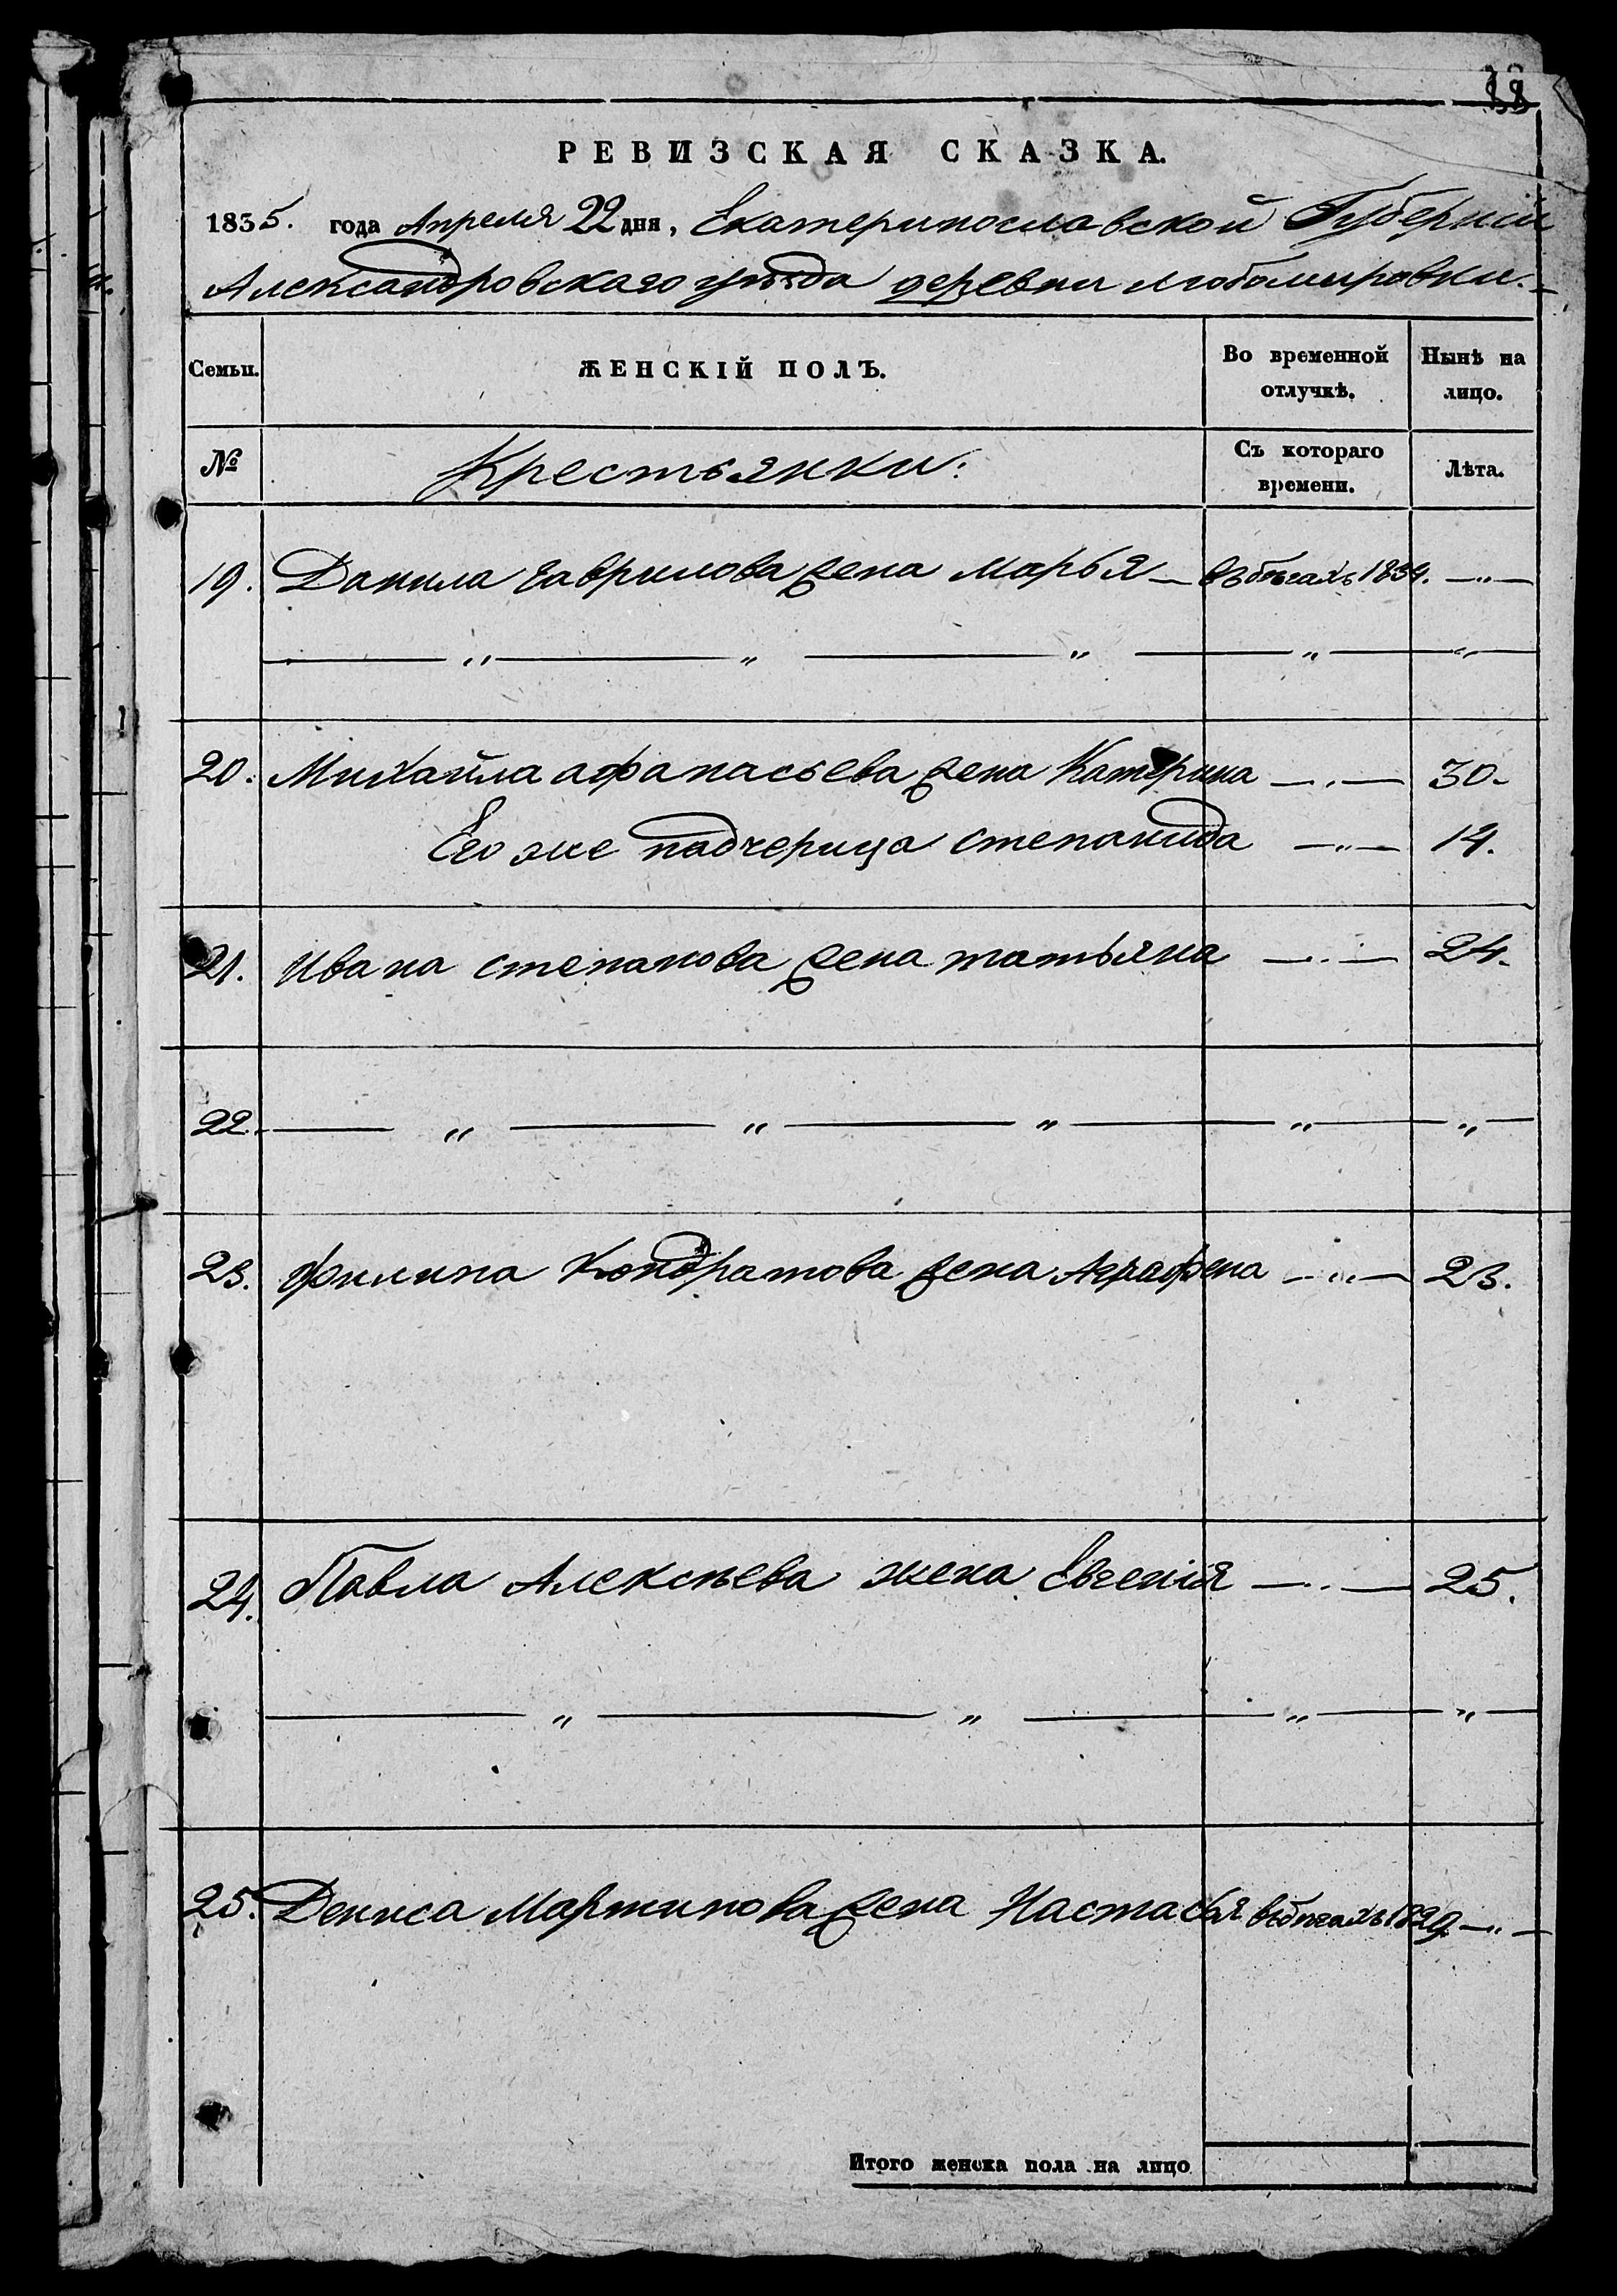 РЕВИЗСКАЯ СКАЗКА.
1835. года Апреля 22 дня, Екатеринославской Губерніи
Александровскаго уѣзда деревни Любомировки.
Семьи. ЖЕНСКІЙ ПОЛЪ. Во временной отлучкѣ. Нынѣ на лицо.
№ Крестьянки: Съ котораго времени. Лѣта.
19. Данила гаврилова жена Марья — въ бѣгахъ 1834. — „ —
— „ — „ — „ — „ — „
20. Михайла афанасьева жена Катерина — „ — 30.
Его же падчерица степанида — „ — 14.
21. Ивана степанова жена татьяна — „ — 24.
22. — „ — „ — „ — „ — „ —
23. Филипа Кондратова жена Аграфена — „ — 23.
24. Павла Алексѣева жена Евгенія — „ — 25.
— „ — „ — „ — „ —
25. Дениса Мартинова жена Настасья въ бѣгахъ 1829 — „ —
Итого женска пола на лицо